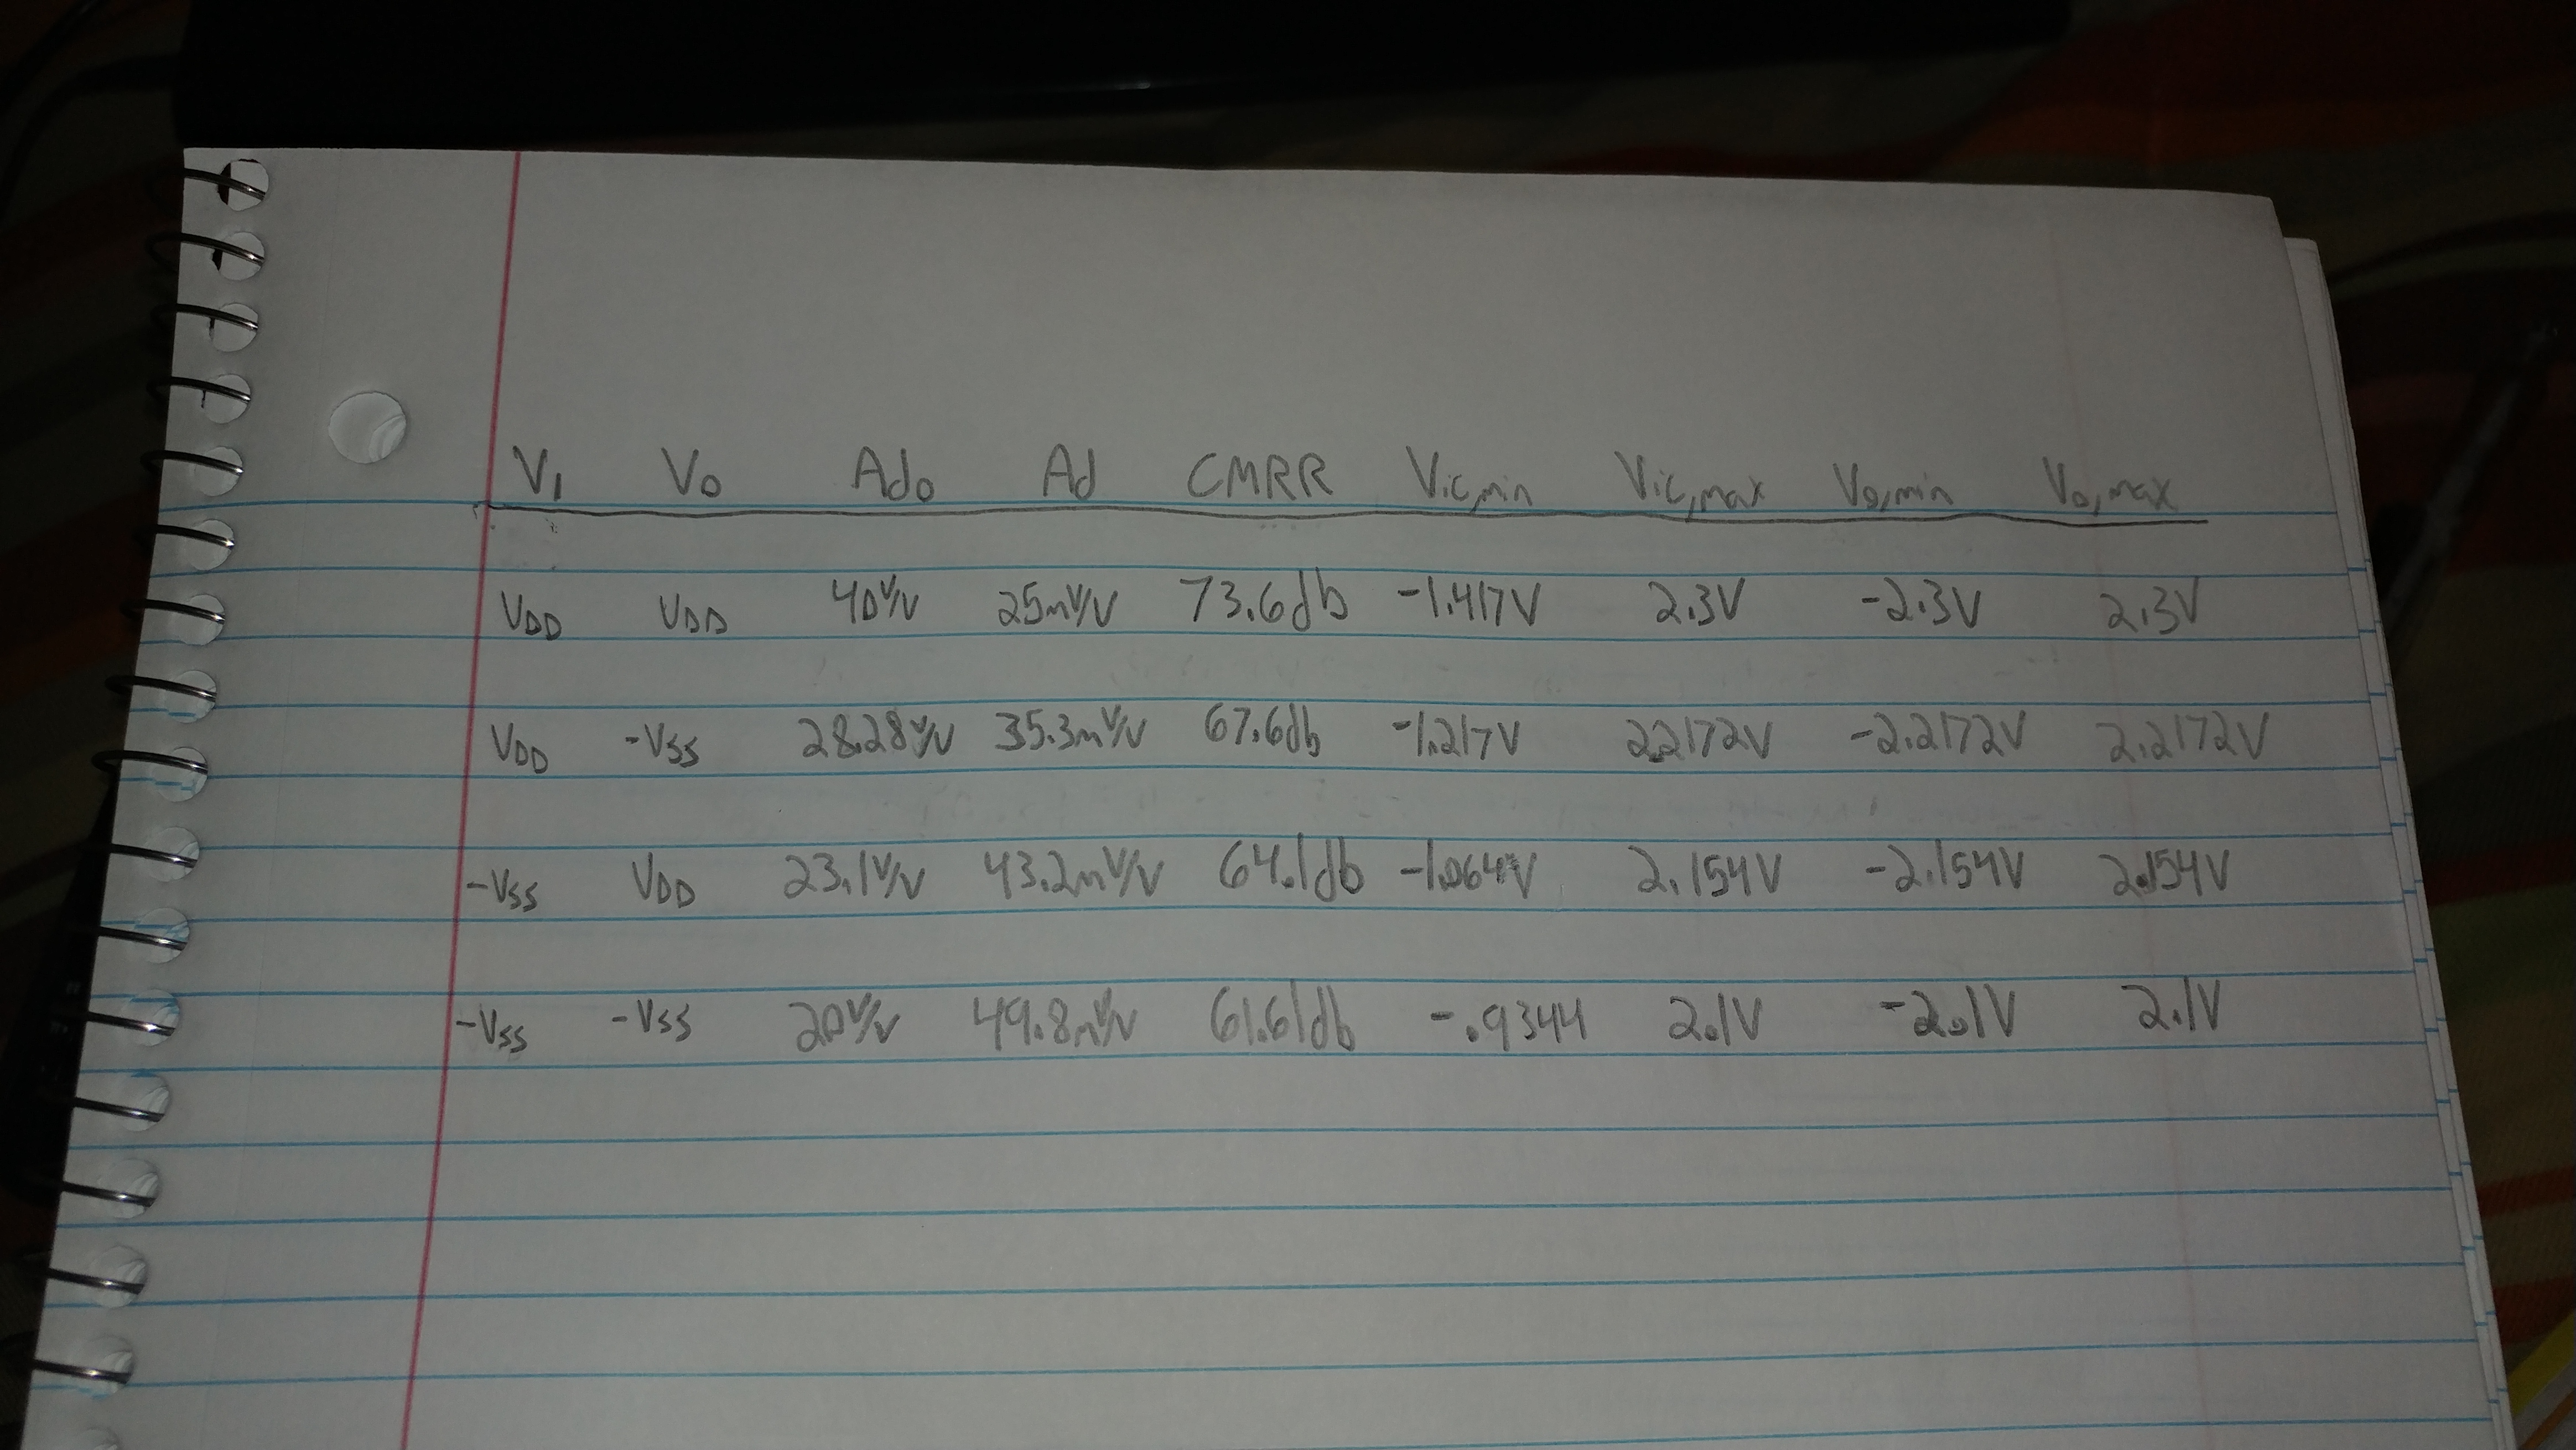 V1 Vo Ado Ad CMRR Vic,min Vic,max Vo,min Vo,max
VDD VDD 40V/V 25mV/V 73.6db -1.417V 2.3V -2.3V 2.3V
VDD -VSS 28.28V/V 35.3mV/V 67.6db -1.217V 2.2172V -2.2172V 2.2172V
-VSS VDD 23.1V/V 43.2mV/V 64.1db -1.064V 2.154V -2.154V 2.154V
-VSS -VSS 20V/V 49.8mV/V 61.61db -.9344 2.1V -2.1V 2.1V